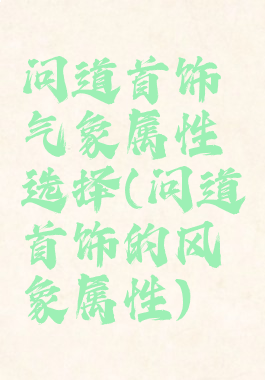 问道首饰
气象属性
选择(问道
首饰的风
象属性)